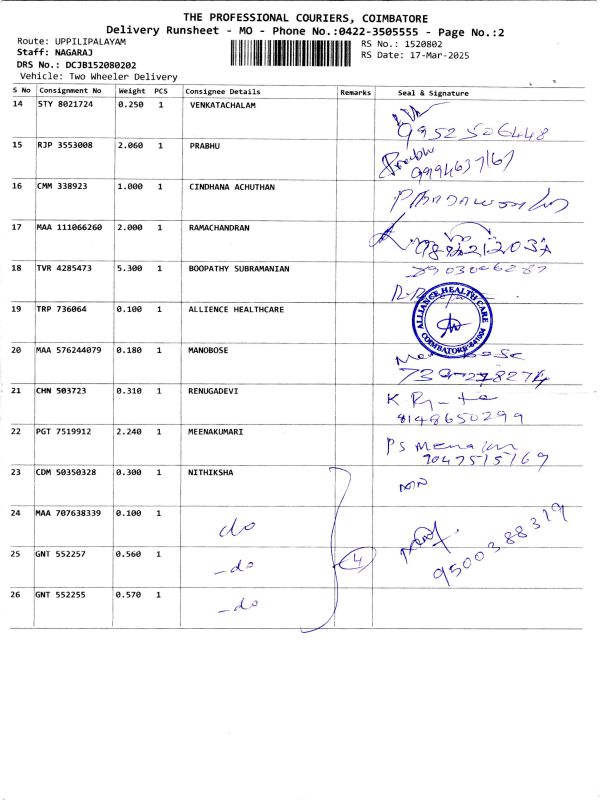 THE PROFESSIONAL COURIERS, COIMBATORE
Delivery Runsheet - MO - Phone No.:0422-3505555 - Page No.:2
Route: UPPILIPALAYAM
RS No.: 1520802
Staff: NAGARAJ
RS Date: 17-Mar-2025
DRS No.: DCJB152080202
Vehicle: Two Wheeler Delivery
S No Consignment No Weight PCS Consignee Details Remarks Seal & Signature
14 STY 8021724 0.250 1 VENKATACHALAM
9952506448
15 RJP 3553008 2.060 1 PRABHU
Prabhu
9994637167
16 CMM 338923 1.000 1 CINDHANA ACHUTHAN
17 MAA 111066260 2.000 1 RAMACHANDRAN
18 TVR 4285473 5.300 1 BOOPATHY SUBRAMANIAN
19 TRP 736064 0.100 1 ALLIENCE HEALTHCARE
ALLIANCE HEALTH CARE
COIMBATORE-641004
20 MAA 576244079 0.180 1 MANOBOSE
21 CHN 503723 0.310 1 RENUGADEVI
8148650299
22 PGT 7519912 2.240 1 MEENAKUMARI
23 CDM 50350328 0.300 1 NITHIKSHA
24 MAA 707638339 0.100 1 do
25 GNT 552257 0.560 1 -do 4
9500388319
26 GNT 552255 0.570 1 -do